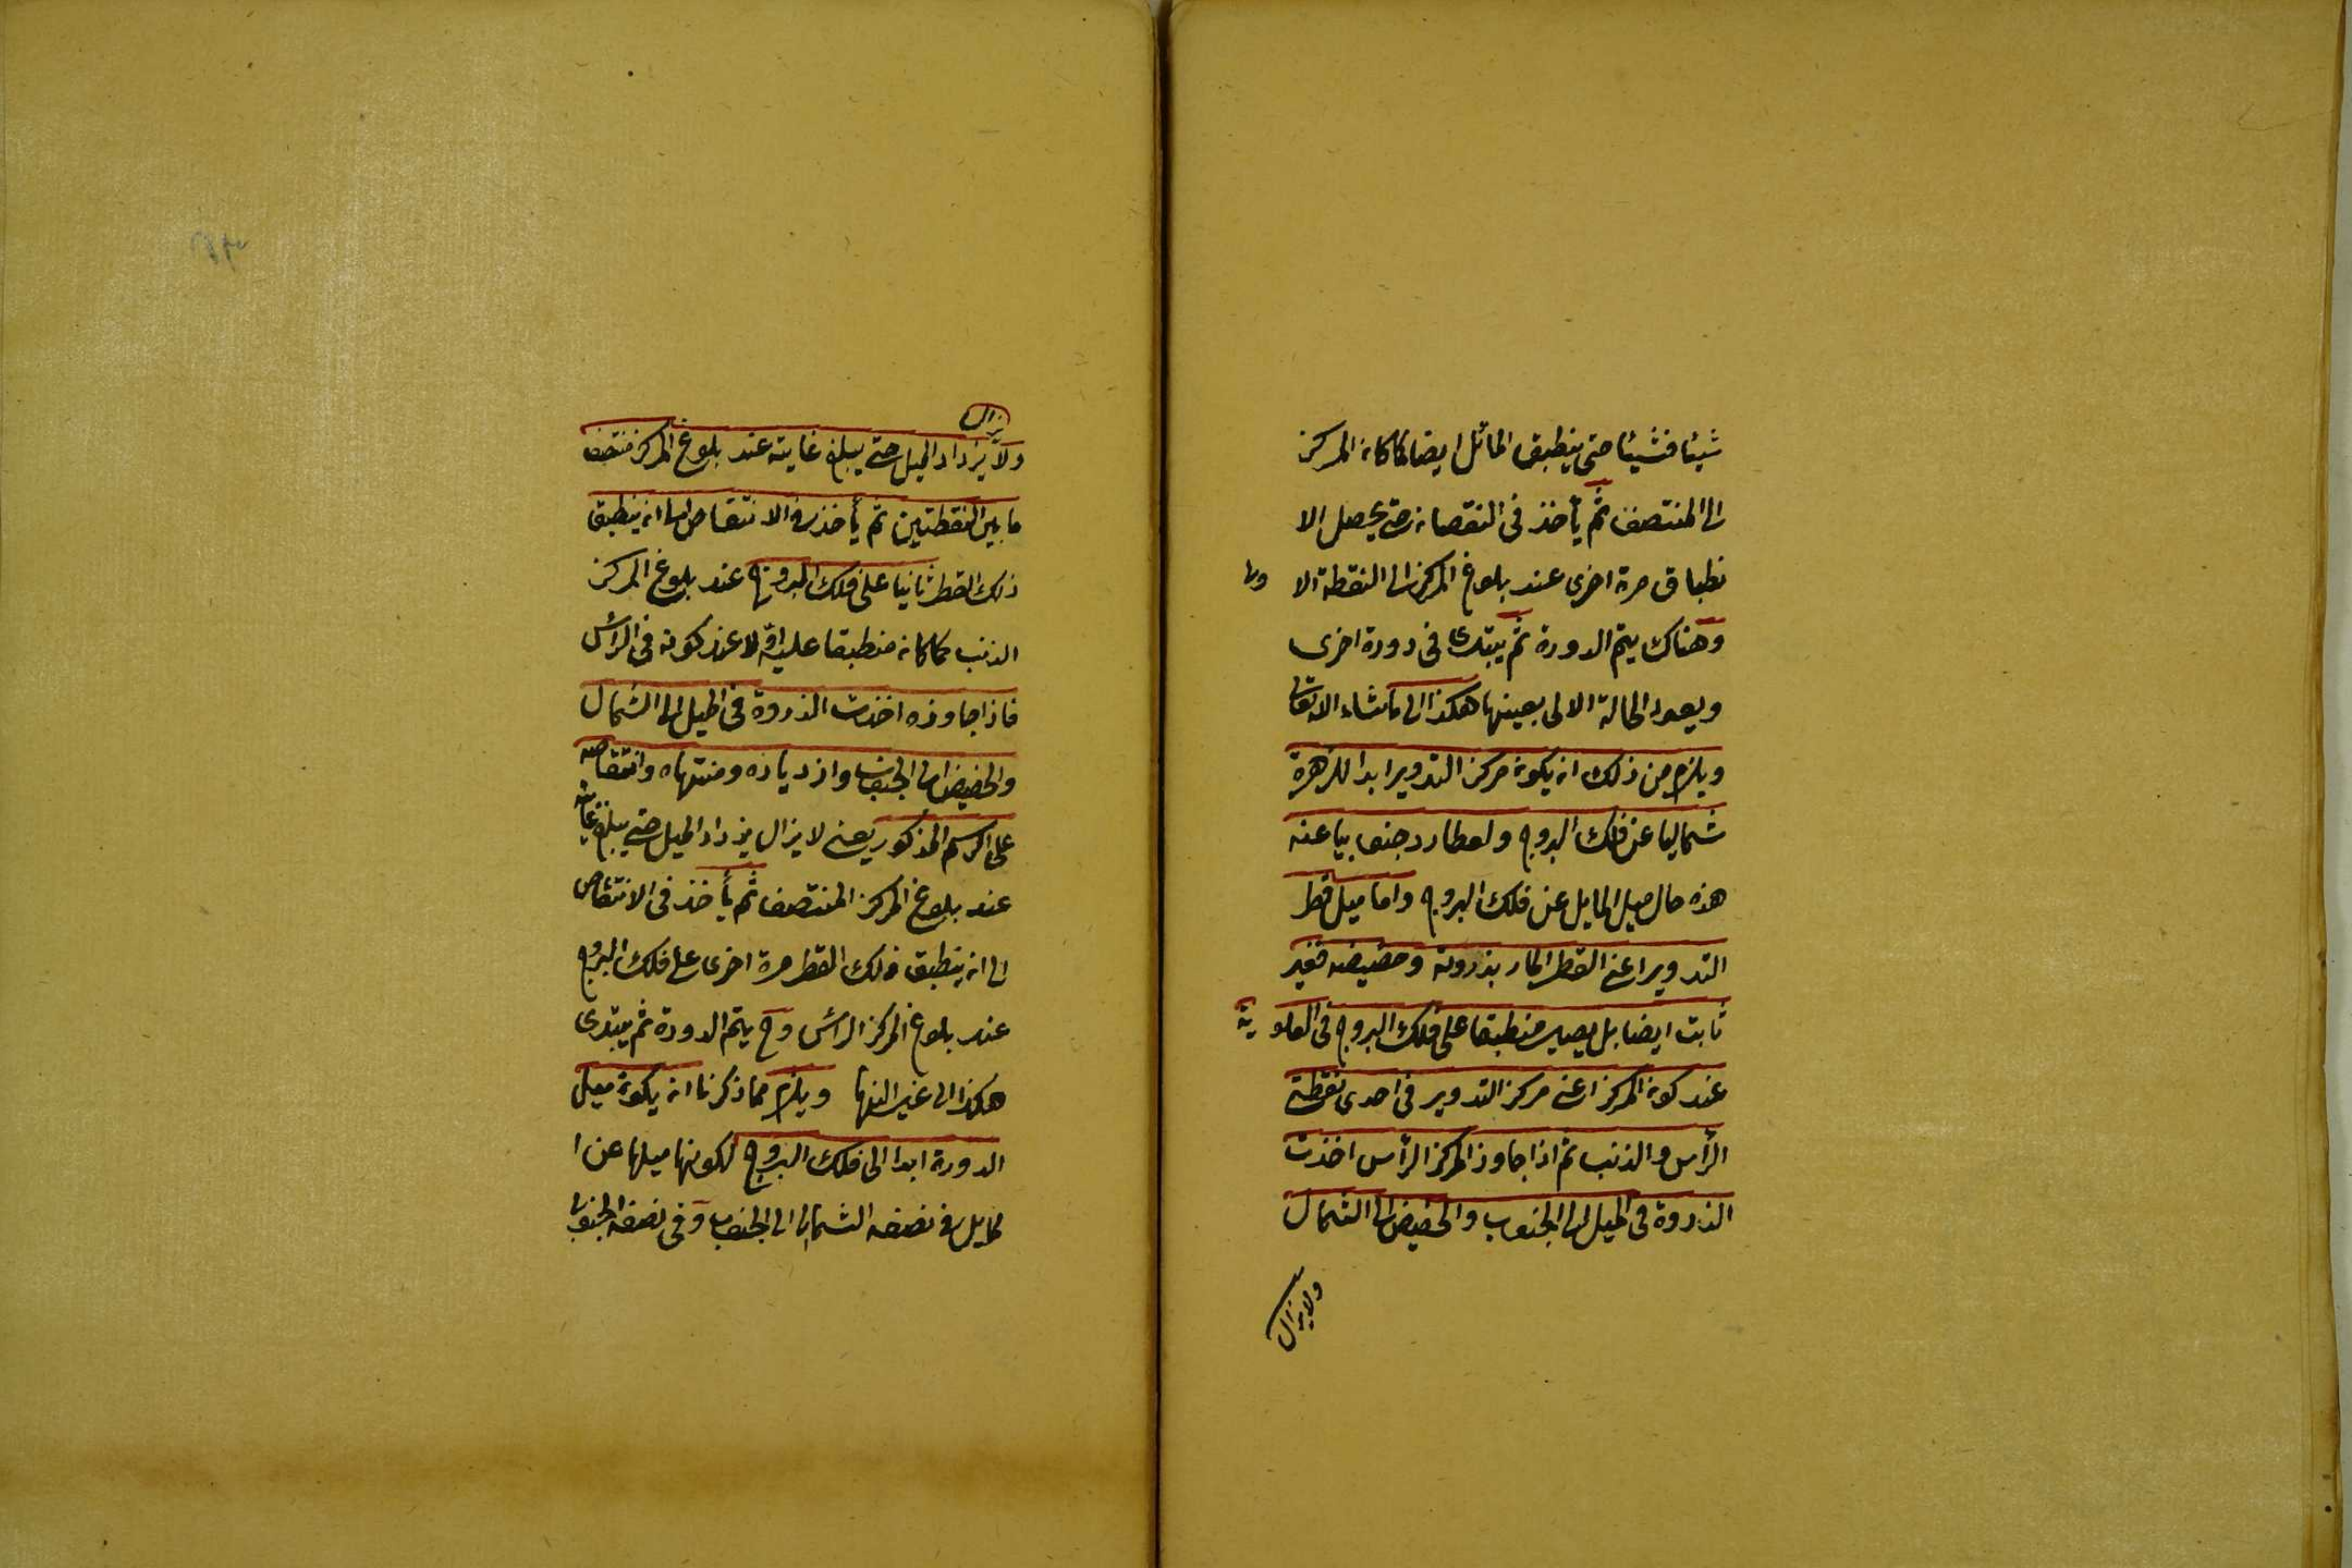 شيئا فشيئا حتى ينطبق المائل ايضا كما كان المركز
الى المنتصف ثم يأخذ فى النقصان حتى يحصل الا
نطباق مرة اخرى عند بلوغ المركز الى النقطة الا ولى
وهناك يتم الدورة ثم يبتدى فى دورة اخرى
ويعود الحالة الاولى بعينها هكذا الى ماشاء الله تعالى
ويلزم من ذلك ان يكون مركز التدوير ابدا للزهرة
شماليا عن فلك البروج ولعطارد جنوبيا عنه
هذه حال ميل المايل عن فلك البروج واما ميل قطر
التدوير اعنى القطر المار بذروته وحضيضه فغير
ثابت ايضا بل يصير منطبقا على فلك البروج فى العلو ية
عند كون المركز اعنى مركز التدوير فى احدى نقطتى
الرأس والذنب ثم اذا جاوز المركز الرأس اخذت
الذروة فى الميل الى الجنوب والحضيض الى الشمال
ولايزال
يزال
ولا يزداد الميل حتى يبلغ غايته عند بلوغ المركز منتصف
ما بين النقطتين ثم يأخذ فى الانتقاص الى ان ينطبق
ذلك القطر ثانيا على فلك البروج عند بلوغ المركز
الذنب كما كان منطبقا عليه اولا عند كونه فى الرأس
فاذا جاوزه اخذت الذروة فى الميل الى الشمال
والحضيض الى الجنوب وازدياده ومنتهاه وانتقاصه
على الرسم المذكور يعنى لا يزال يزداد الميل حتى يبلغ غايته
عند بلوغ المركز المنتصف ثم يأخذ فى الانتقاص
الى ان ينطبق ذلك القطر مرة اخرى على فلك البروج
عند بلوغ المركز الرأس وح يتم الدورة ثم يبتدى
هكذا الى غير النهاية ويلزم مما ذكرنا ان يكون ميل
الدورة ابدا الى فلك البروج لكونها ميلها عن ا
لمايل فى نصفه الشمالى الى الجنوب وفى نصفه الجنوبى